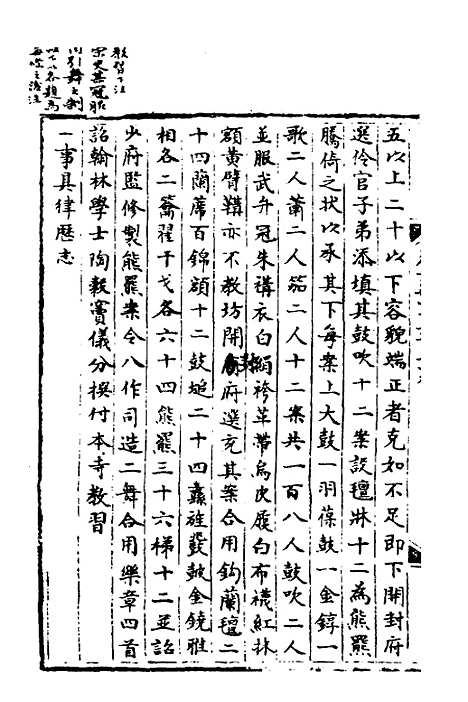 五以上二十以下容貌端正者充如不足即下開封府
選伶官子弟添填其鼓吹十二案設氊牀十二為熊羆
騰倚之狀以承其下每案上大鼓一羽葆鼓一金錞一
歌二人簫二人笳二人十二案共一百八人鼓吹二人
並服武弁冠朱褠衣白袴革帶烏皮履白布襪紅抹
額黃臂韝亦不教坊開府選充其案合用鈎蘭氊二
十四蘭席百錦額十二鼓槌二十四纛旌鼗鼓金鐃雅
相各二籥翟干戈各六十四熊羆三十六梯十二並詔
少府監修製熊羆案令八作司造二舞合用樂章四首
詔翰林學士陶穀竇儀分撰付本寺教習
一事具律歷志
教習下注
宋史甚冠服